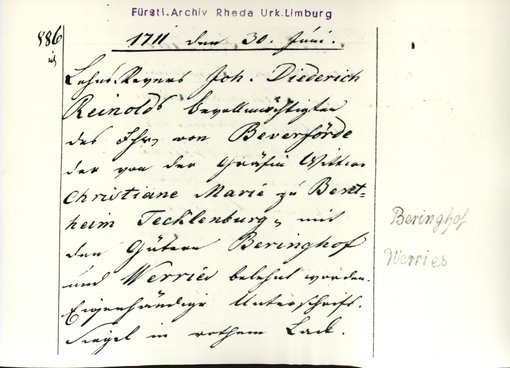 Fürstl. Archiv Rheda Urk. Limburg
886
1711 den 30. Juni.
Lehns-Revers Joh. Diederich
Reinolds bevollmächtigter
des Fhr. von Beverförde
der von der Gräfin Wittwe
Christiane Marie zu Bent-
heim Tecklenburg, mit
den Gütern Beringhof
und Werries belehnt worden.
Eigenhändige Unterschrift.
Siegel in rothem Lack.
Beringhof
Werries